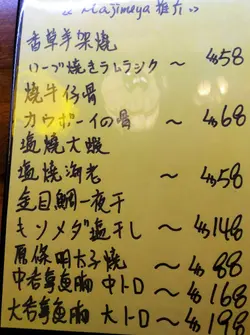 Majimeya 推介
香草羊架燒
ハーブ焼きラムラック ~ $58
燒牛仔骨
カウボーイの骨 ~ $68
塩燒大蝦
塩焼海老 ~ $58
金目鯛一夜干
キンメダイ塩干し ~ $148
原條明太子燒 ~ $88
中吞拿魚腩 中トロ ~ $168
大吞拿魚腩 大トロ ~ $198